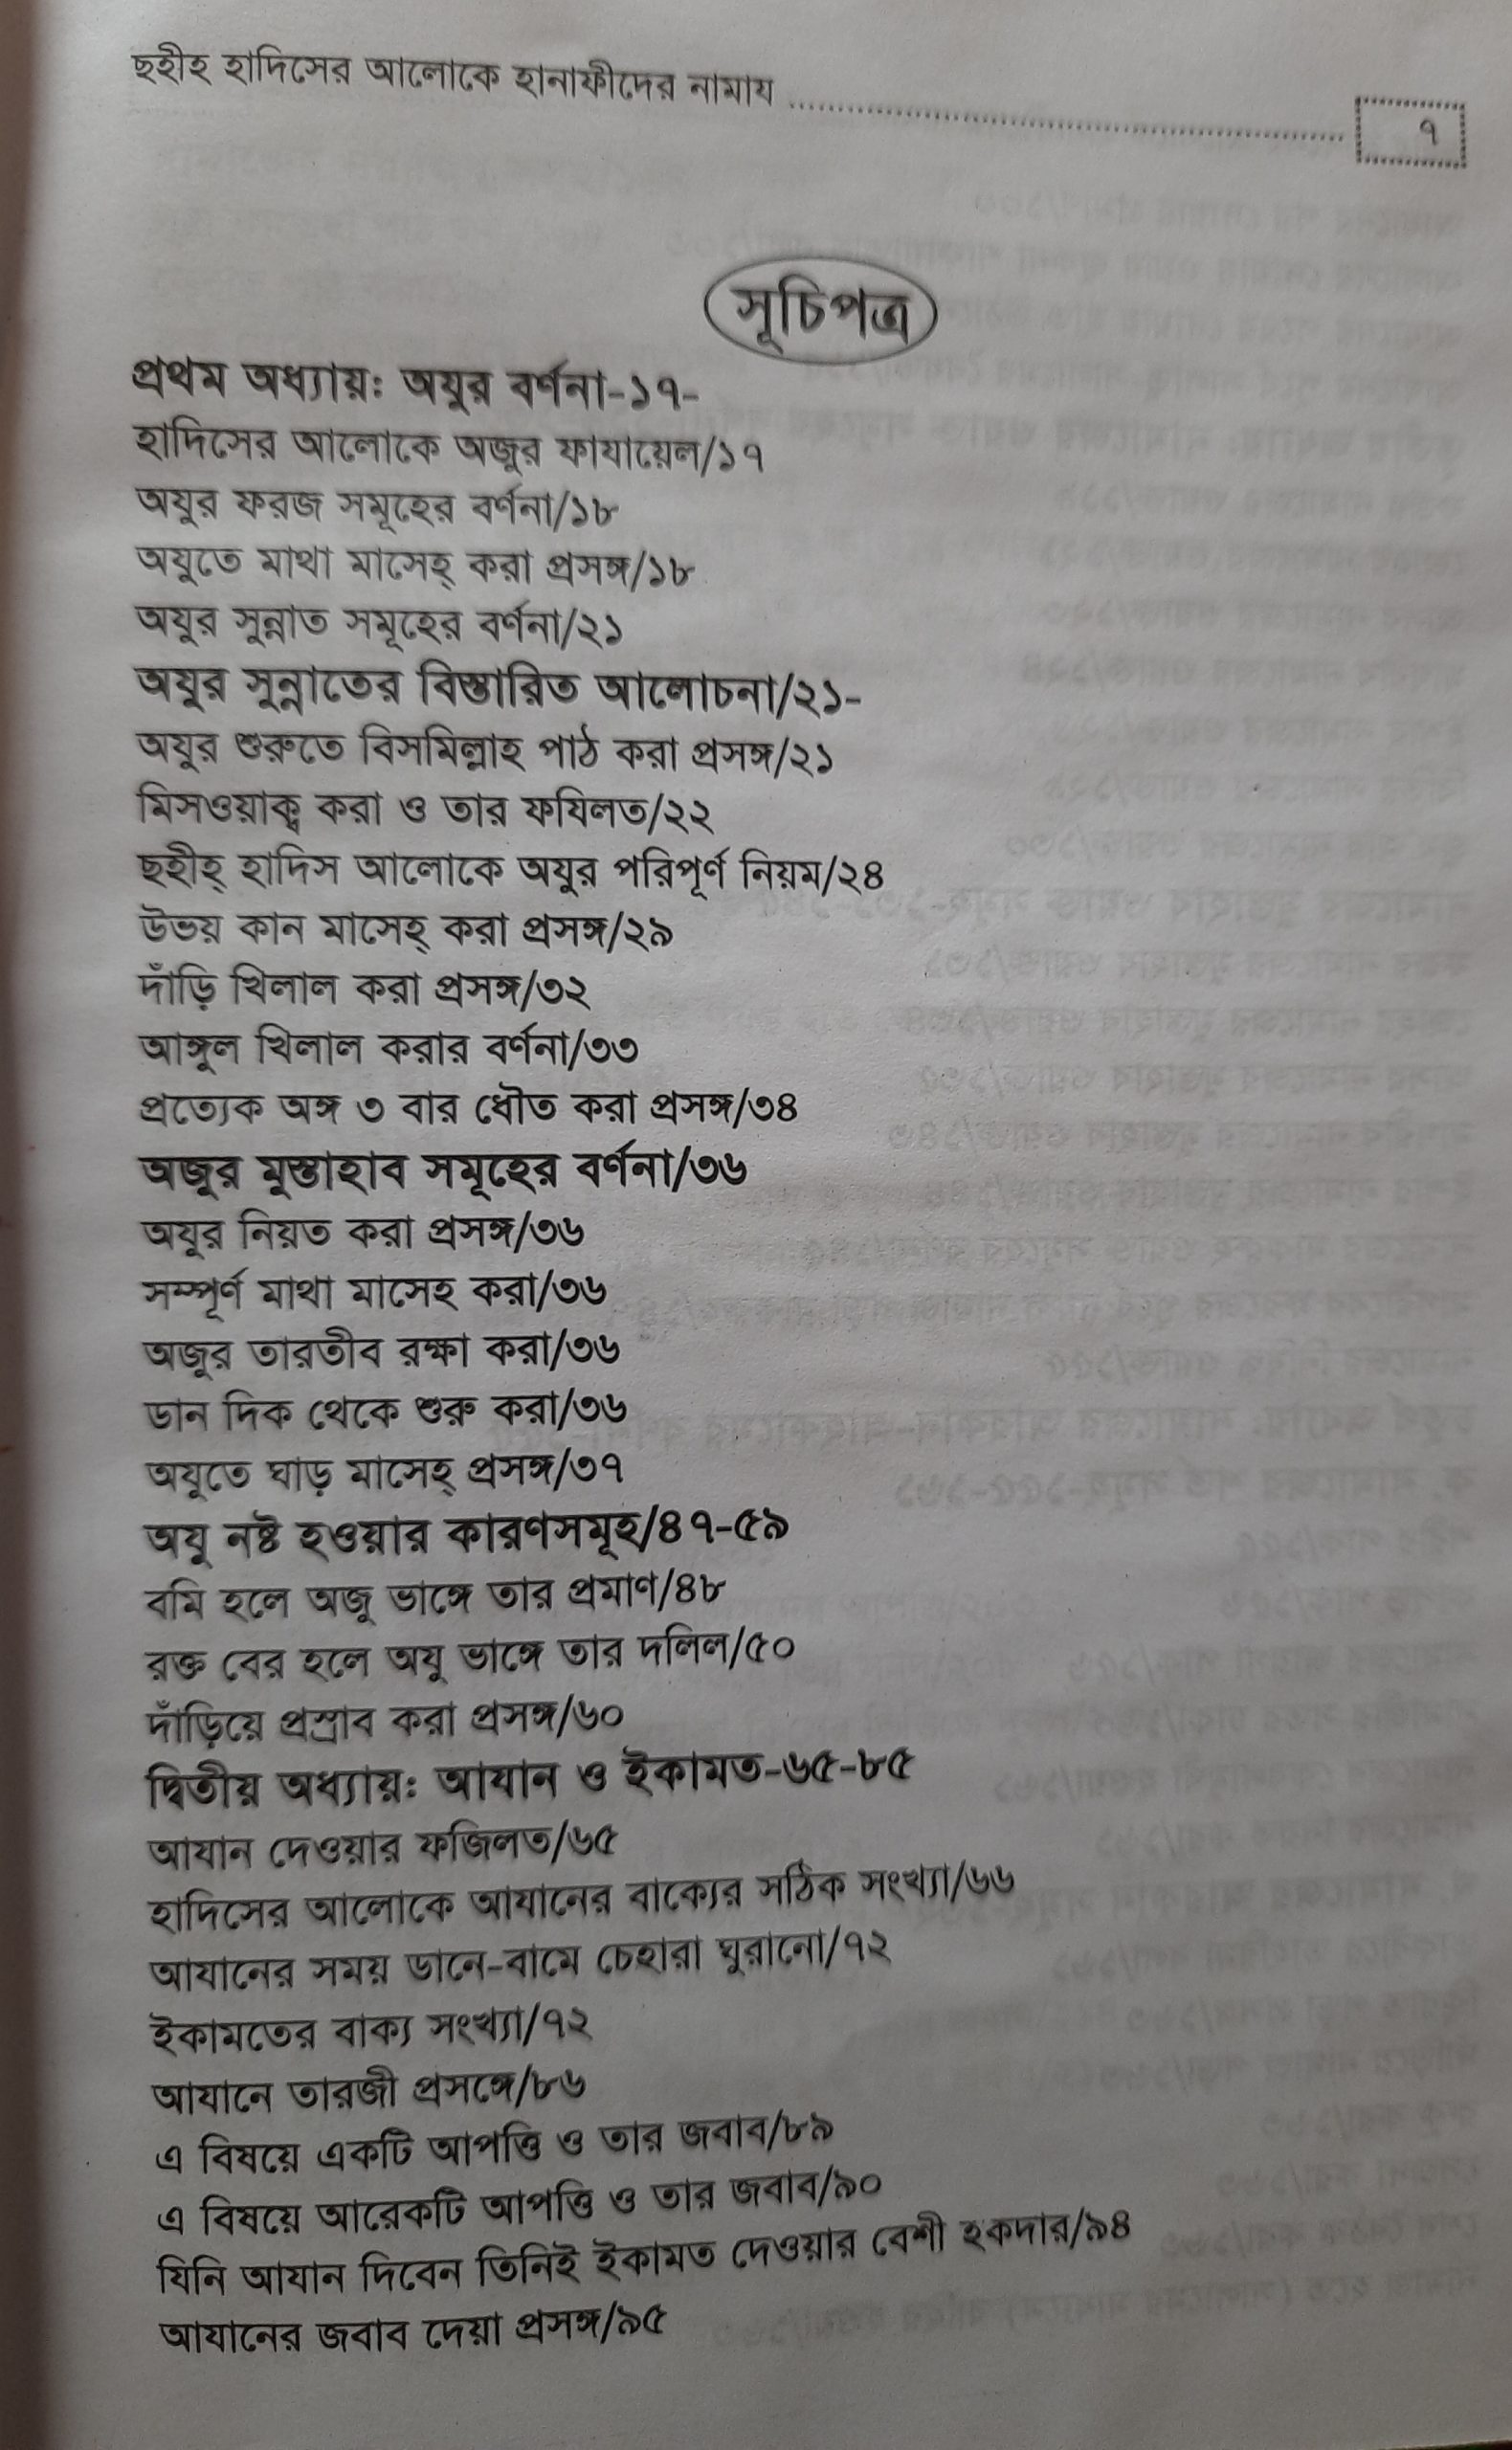 ছহীহ হাদিসের আলোকে হানাফীদের নামায ৭
সূচিপত্র
প্রথম অধ্যায়ঃ অযুর বর্ণনা-১৭-
হাদিসের আলোকে অজুর ফাযায়েল/১৭
অযুর ফরজ সমূহের বর্ণনা/১৮
অযুতে মাথা মাসেহ্ করা প্রসঙ্গ/১৮
অযুর সুন্নাত সমূহের বর্ণনা/২১
অযুর সুন্নাতের বিস্তারিত আলোচনা/২১-
অযুর শুরুতে বিসমিল্লাহ পাঠ করা প্রসঙ্গ/২১
মিসওয়াক্ব করা ও তার ফযিলত/২২
ছহীহ্ হাদিস আলোকে অযুর পরিপূর্ণ নিয়ম/২৪
উভয় কান মাসেহ্ করা প্রসঙ্গ/২৯
দাঁড়ি খিলাল করা প্রসঙ্গ/৩২
আঙ্গুল খিলাল করার বর্ণনা/৩৩
প্রত্যেক অঙ্গ ৩ বার ধৌত করা প্রসঙ্গ/৩৪
অজুর মুস্তাহাব সমূহের বর্ণনা/৩৬
অযুর নিয়ত করা প্রসঙ্গ/৩৬
সম্পূর্ণ মাথা মাসেহ করা/৩৬
অজুর তারতীব রক্ষা করা/৩৬
ডান দিক থেকে শুরু করা/৩৬
অযুতে ঘাড় মাসেহ্ প্রসঙ্গ/৩৭
অযু নষ্ট হওয়ার কারণসমূহ/৪৭-৫৯
বমি হলে অজু ভাঙ্গে তার প্রমাণ/৪৮
রক্ত বের হলে অযু ভাঙ্গে তার দলিল/৫০
দাঁড়িয়ে প্রস্রাব করা প্রসঙ্গ/৬০
দ্বিতীয় অধ্যায়ঃ আযান ও ইকামত-৬৫-৮৫
আযান দেওয়ার ফজিলত/৬৫
হাদিসের আলোকে আযানের বাক্যের সঠিক সংখ্যা/৬৬
আযানের সময় ডানে-বামে চেহারা ঘুরানো/৭২
ইকামতের বাক্য সংখ্যা/৭২
আযানে তারজী প্রসঙ্গে/৮৬
এ বিষয়ে একটি আপত্তি ও তার জবাব/৮৯
এ বিষয়ে আরেকটি আপত্তি ও তার জবাব/৯০
যিনি আযান দিবেন তিনিই ইকামত দেওয়ার বেশী হকদার/৯৪
আযানের জবাব দেয়া প্রসঙ্গ/৯৫